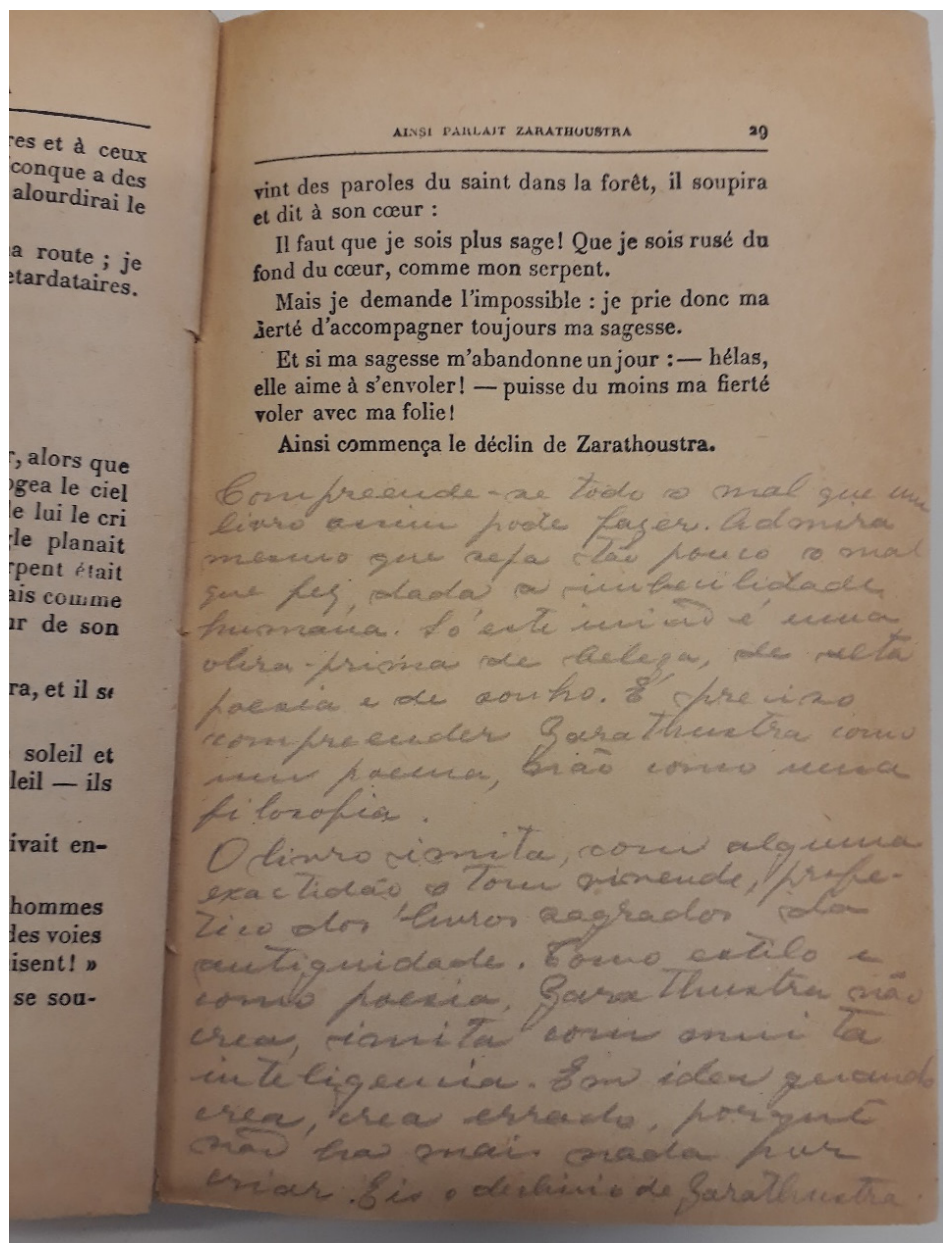 res et à ceux
conque a des
alourdirai le
a route ; je
etardataires.
, alors que
ogea le ciel
e lui le cri
gle planait
rpent était
ais comme
ur de son
ra, et il se
soleil et
leil — ils
ivait en-
hommes
les voies
isent! »
se sou-
AINSI PARLAIT ZARATHOUSTRA 29
vint des paroles du saint dans la forêt, il soupira
et dit à son cœur :
Il faut que je sois plus sage! Que je sois rusé du
fond du cœur, comme mon serpent.
Mais je demande l'impossible : je prie donc ma
fierté d'accompagner toujours ma sagesse.
Et si ma sagesse m'abandonne un jour : — hélas,
elle aime à s'envoler! — puisse du moins ma fierté
voler avec ma folie!
Ainsi commença le déclin de Zarathoustra.
Comprende-se todo o mal que um
livro assim pode fazer. Admira
mesmo que seja tão pouco o mal
que fez, dada a imbecilidade
humana. Só este é uma
obra-prima de beleza, de alta
poesia e de sonho. É preciso
compreender Zarathustra como
um poema, não como uma
filosofia.
O livro imita, com alguma
exactidão o tom profe-
tico dos livros sagrados da
antiguidade. Como estilo e
como poesia, Zarathustra não
crea, imita com muita
inteligencia. Em idea quando
crea, crea errado, porquê
não ha mais nada por
criar. Eis o declinio de Zarathustra.